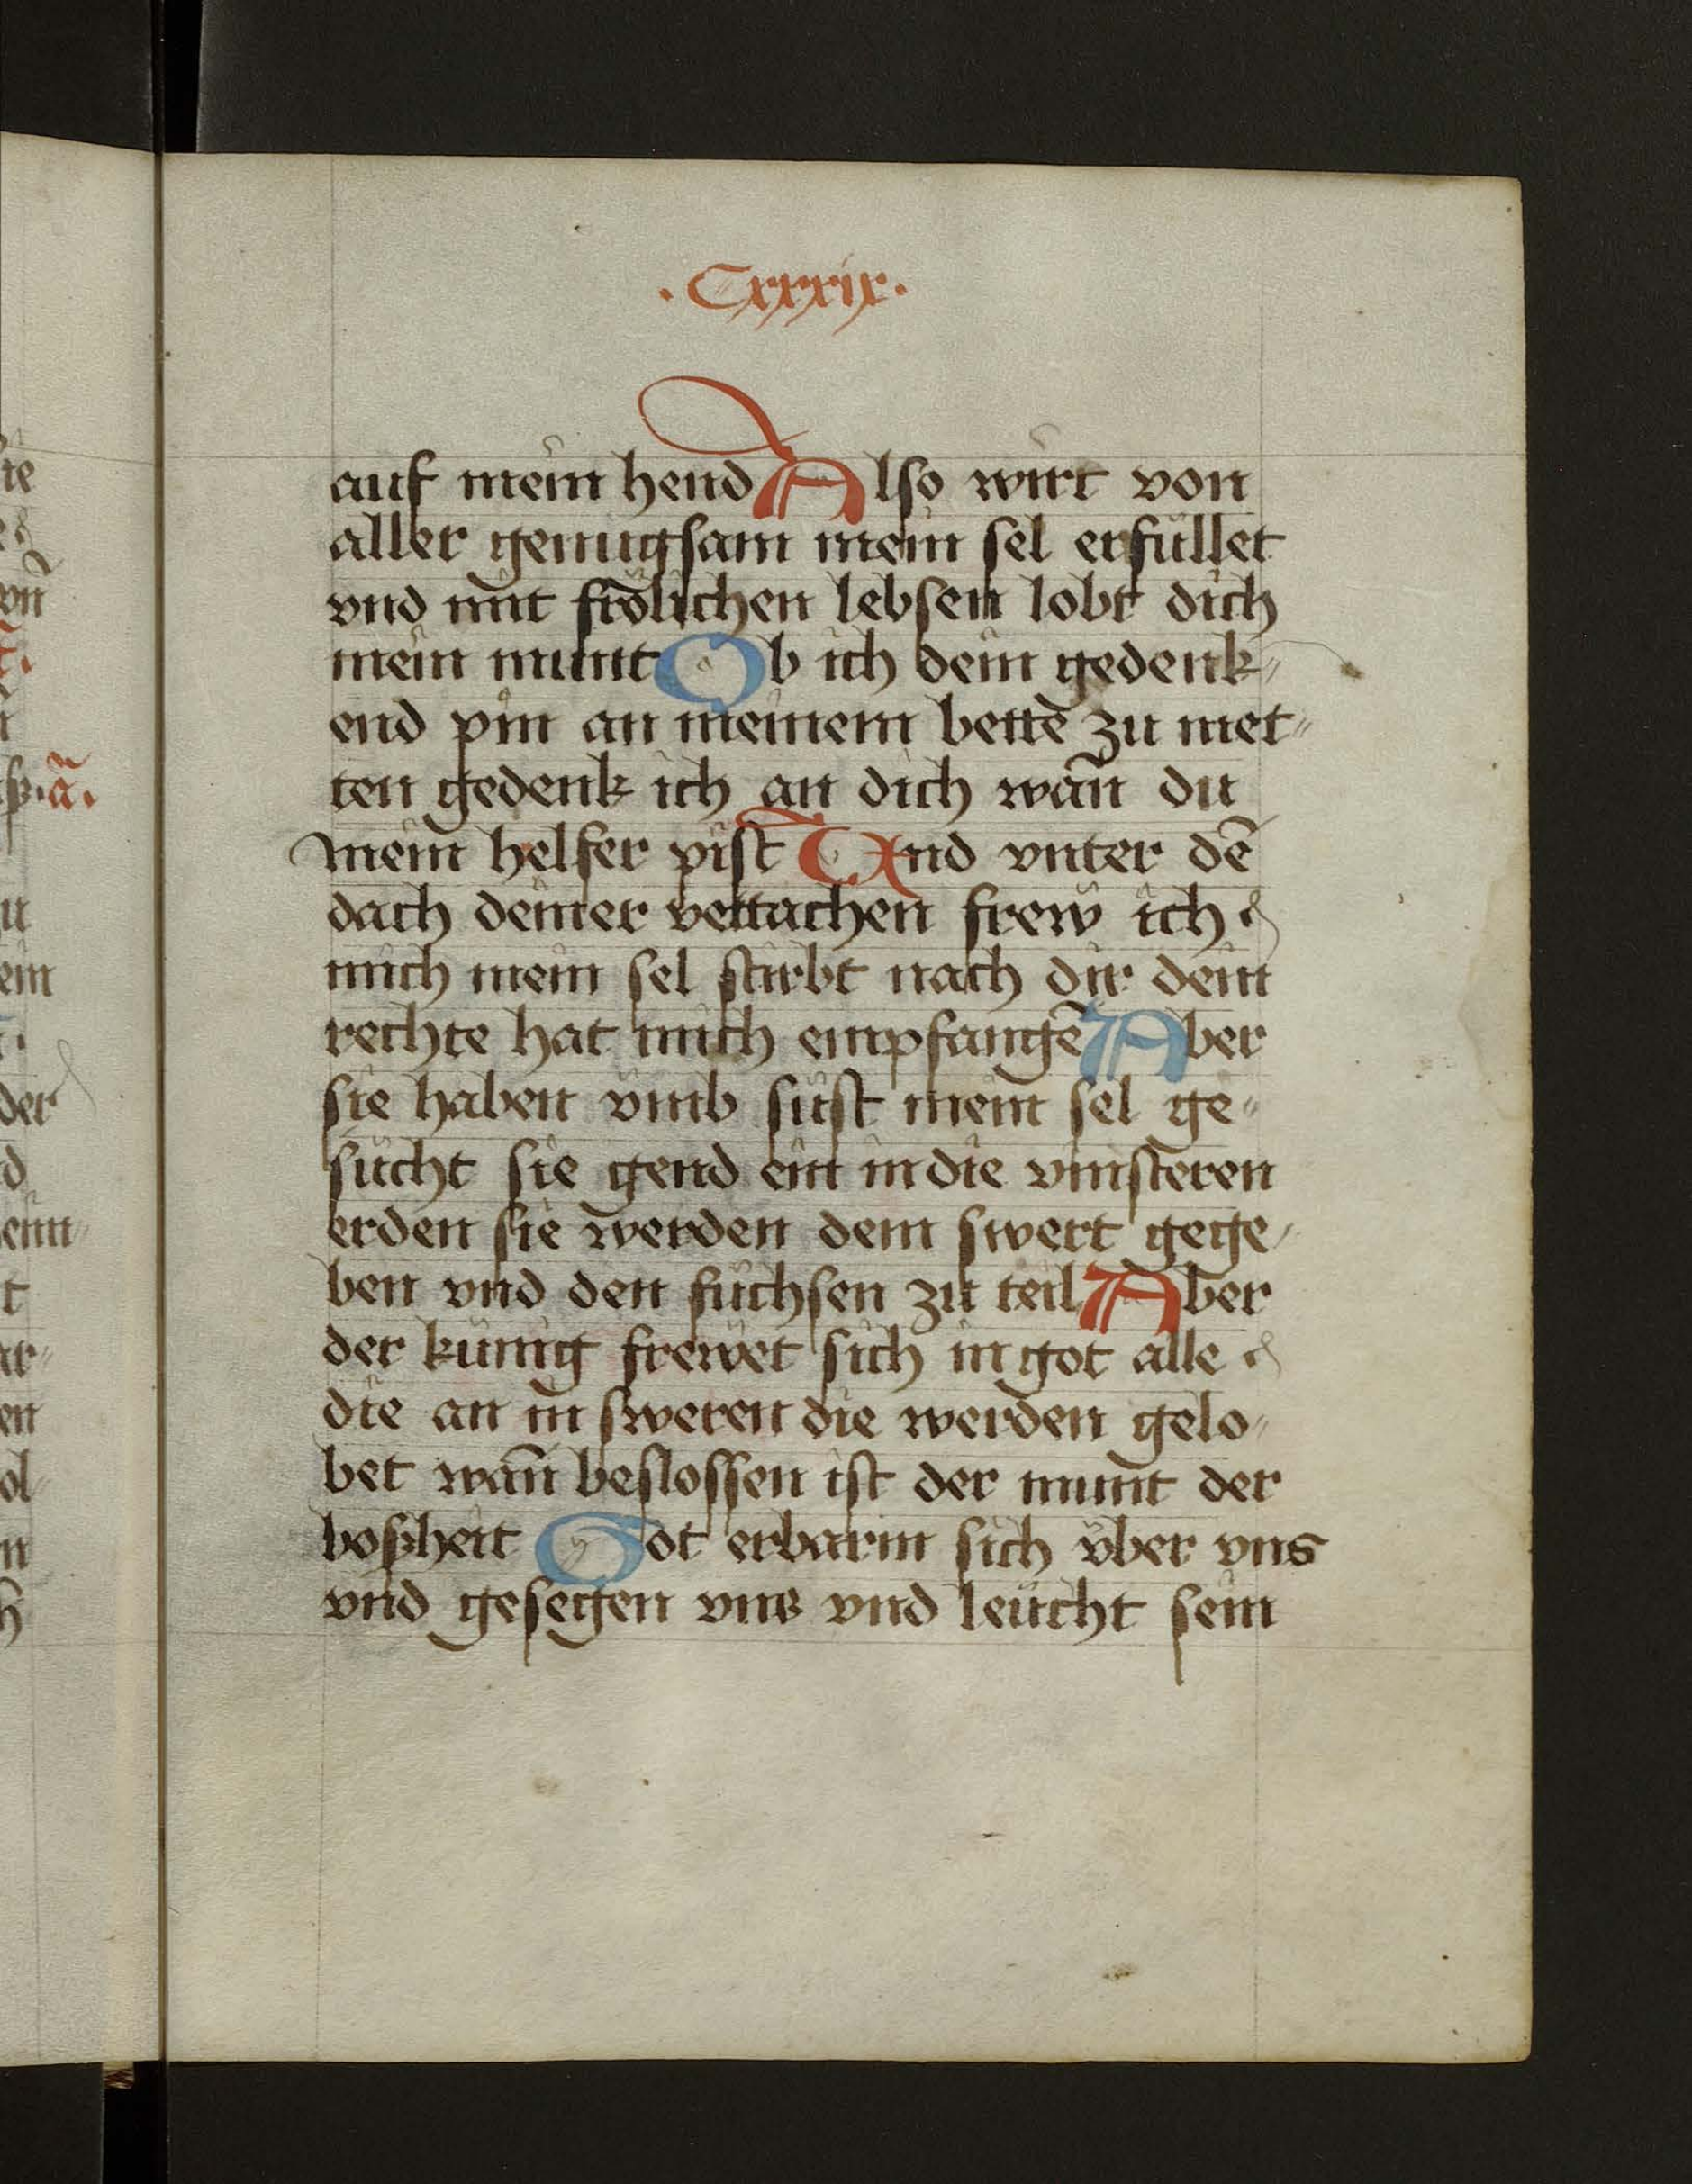 ·Cxxxix·
auf mein hend Also wirt von
aller genugsam mein sel erfüllet
vnd mit frölichen lebsen lobt dich
mein munt Ob ich dein gedenk⸗
end pin an meinem bettē zu met⸗
ten gedenk ich an dich wañ du
mein helfer pist Vnd vnter dē
dach deiner vettachen frew ich
mich mein sel stirbt nach dir dein
rechte hat mich empfangē Aber
sie haben vmb süst mein sel ge⸗
sucht sie gend ein in die vinsteren
erden sie werden dem swert gege⸗
ben vnd den füchsen zu teil Aber
der künig frewet sich in got alle
die an in sweren die werden gelo⸗
bet wañ beslossen ist der munt der
boßheit Got erbarm sich vber vns
vnd gesegen vns vnd leücht sein